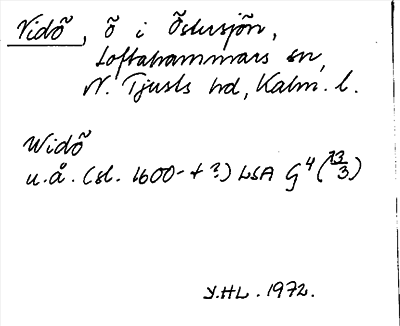 Vidö, ö i Östersjön,
Loftahammars sn,
N. Tjusts hd, Kalm. l.
Widö
u.å. (sl. 1600-t ?) LSA G4 (13/3)
Y.HL. 1972.